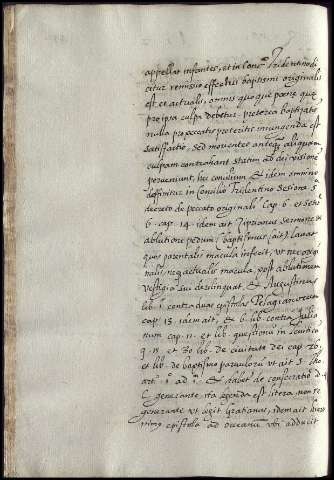 appellat infantes, et in conc° Tridentino di
citur remissio effectus baptismi originalis
est et actualis, omnis quoque poena quae
pro ipsa culpa debetur. praeterea baptizatis
nulla pro peccatis praeteritis iniungenda est
satisfactio, sed morientes antequam aliquam
culpam contrahant statim ad dei visione
perveniunt, haec concilium et idem omnino
deffinitur in Concilio Tridentino sesione 5
decreto de peccato originali Cap 6 et sesio
6. cap. 14. idem ait Ciprianus sermone de
ablutione pedum (baptismus (ait) lavat
quos parentalis macula infecit, ut nec origi
nalis, neq actualis macula, post ablutionem
vestigia sui derelinquat, et Augustinus
lib 1 contra duas epistolas Pelagianorum
cap 13. idem ait, et 6. lib contra Julia
num cap. 11. et lib. questionum in leviticu
q. et 20 lib. de civitate dei cap. 26.
et lib de baptismo parvulorum ut ait S. tho
art° 1° ad 1m et habet de consecratio d. 4
C. generante ita legenda est litera non re
generante ut legit Gratianus, idem ait hiero
nimo epistola ad oceanum ubi adducit